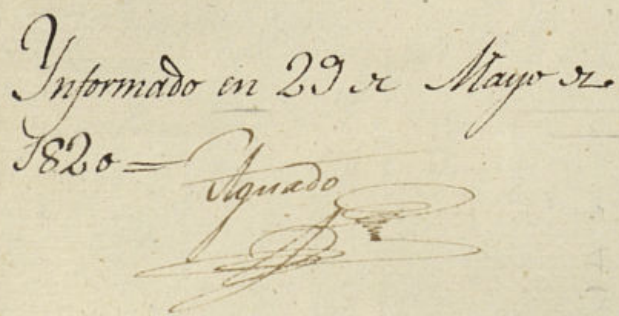 Informado en 29 de Mayo de
1820 =
Aguado